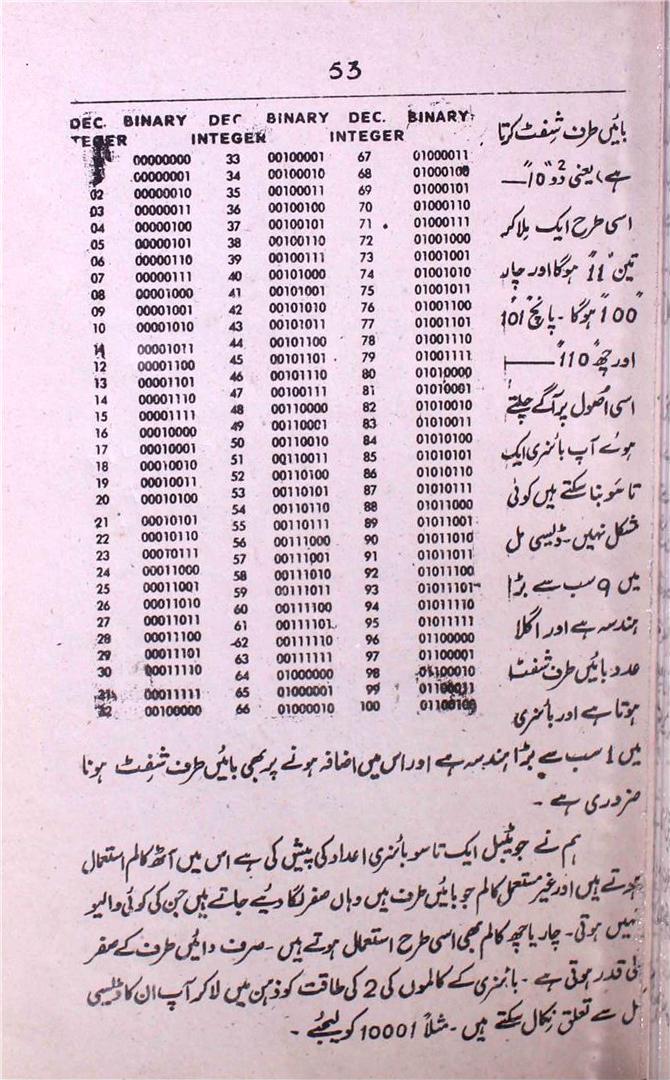 53
DEC. BINARY DEC BINARY DEC. BINARY
INTEGER INTEGER
00000000 33 00100001 67 01000011
00000001 34 00100010 68 01000100
02 00000010 35 00100011 69 01000101
03 00000011 36 00100100 70 01000110
04 00000100 37 00100101 71 01000111
05 00000101 38 00100110 72 01001000
06 00000110 39 00100111 73 01001001
07 00000111 40 00101000 74 01001010
08 00001000 41 00101001 75 01001011
09 00001001 42 00101010 76 01001100
10 00001010 43 00101011 77 01001101
11 00001011 44 00101100 78 01001110
12 00001100 45 00101101 79 01001111
13 00001101 46 00101110 80 01010000
14 00001110 47 00100111 81 01010001
15 00001111 48 00110000 82 01010010
16 00010000 49 00110001 83 01010011
17 00010001 50 00110010 84 01010100
18 00010010 51 00110011 85 01010101
19 00010011 52 00110100 86 01010110
20 00010100 53 00110101 87 01010111
54 00110110 88 01011000
21 00010101 55 00110111 89 01011001
22 00010110 56 00111000 90 01011010
23 00010111 57 00111001 91 01011011
24 00011000 58 00111010 92 01011100
25 00011001 59 00111011 93 01011101
26 00011010 60 00111100 94 01011110
27 00011011 61 00111101 95
28 00011100 62 00111110 96 01100000
29 00011101 63 00111111 97 01100001
30 00011110 64 01000000 98 01100010
31 00011111 65 01000001 99 01100011
32 00100000 66 01000010 100 01100100
بائیں طرف شفٹ کرتا
ہے، یعنی دو "10" 2 —
اسی طرح ایک ملا کر
تین "11" ہوگا اور چار
"100" ہوگا۔ پانچ "101"
اور چھ "110" —
اسی اُصول پر آگے چلتے
ہوئے آپ بائنری ایک
تا سَو بنا سکتے ہیں کوئی
مشکل نہیں۔ ڈیسی مل
میں 9 سب سے بڑا
ہندسہ ہے اور اگلا
عدد بائیں طرف شفٹ
ہوتا ہے اور بائنری
میں 1 سب سے بڑا ہندسہ ہے اور اس میں اضافہ ہونے پر بھی بائیں طرف شفٹ ہونا
ضروری ہے۔
ہم نے جو ٹیبل ایک تا سو بائنری اعداد کی پیش کی ہے اس میں آٹھ کالم استعمال
ہوتے ہیں اور غیر مستعمل کالم جو بائیں طرف ہیں وہاں صفر لگا دیئے جاتے ہیں جن کی کوئی والیو
نہیں ہوتی۔ چار یا چھ کالم بھی اسی طرح استعمال ہوتے ہیں۔ صرف دائیں طرف کے صفر
کی قدر ہوتی ہے۔ بائنری کے کالموں کی 2 کی طاقت کو ذہن میں لا کر آپ ان کا ڈیسی
مل سے تعلق نکال سکتے ہیں۔ مثلاً 10001 کو لیجئے۔